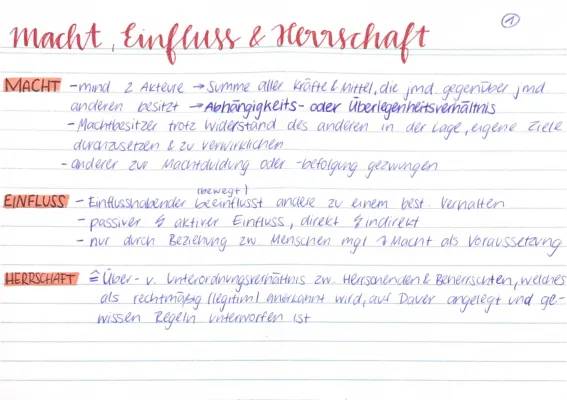 1
Macht, Einfluss & Herrschaft
MACHT - mind 2 Akteure → Summe aller Kräfte & Mittel, die jmd. gegenüber jmd.
anderen besitzt → Abhängigkeits- oder Überlegenheitsverhältnis
- Machtbesitzer trotz Widerstand des anderen in der Lage, eigene Ziele
durchzusetzen & zu verwirklichen
- anderer zur Machtduldung oder -befolgung gezwungen
(bewegt)
EINFLUSS - Einflusshabender beeinflusst andere zu einem best. Verhalten
- passiver & aktiver Einfluss, direkt & indirekt
- nur durch Beziehung zw. Menschen mgl. Macht als Voraussetzung
HERRSCHAFT ≙ Über- u. Unterordnungsverhältnis zw. Herrschenden & Beherrschten, welches
als rechtmäßig (legitim) anerkannt wird, auf Dauer angelegt und ge-
wissen Regeln unterworfen ist